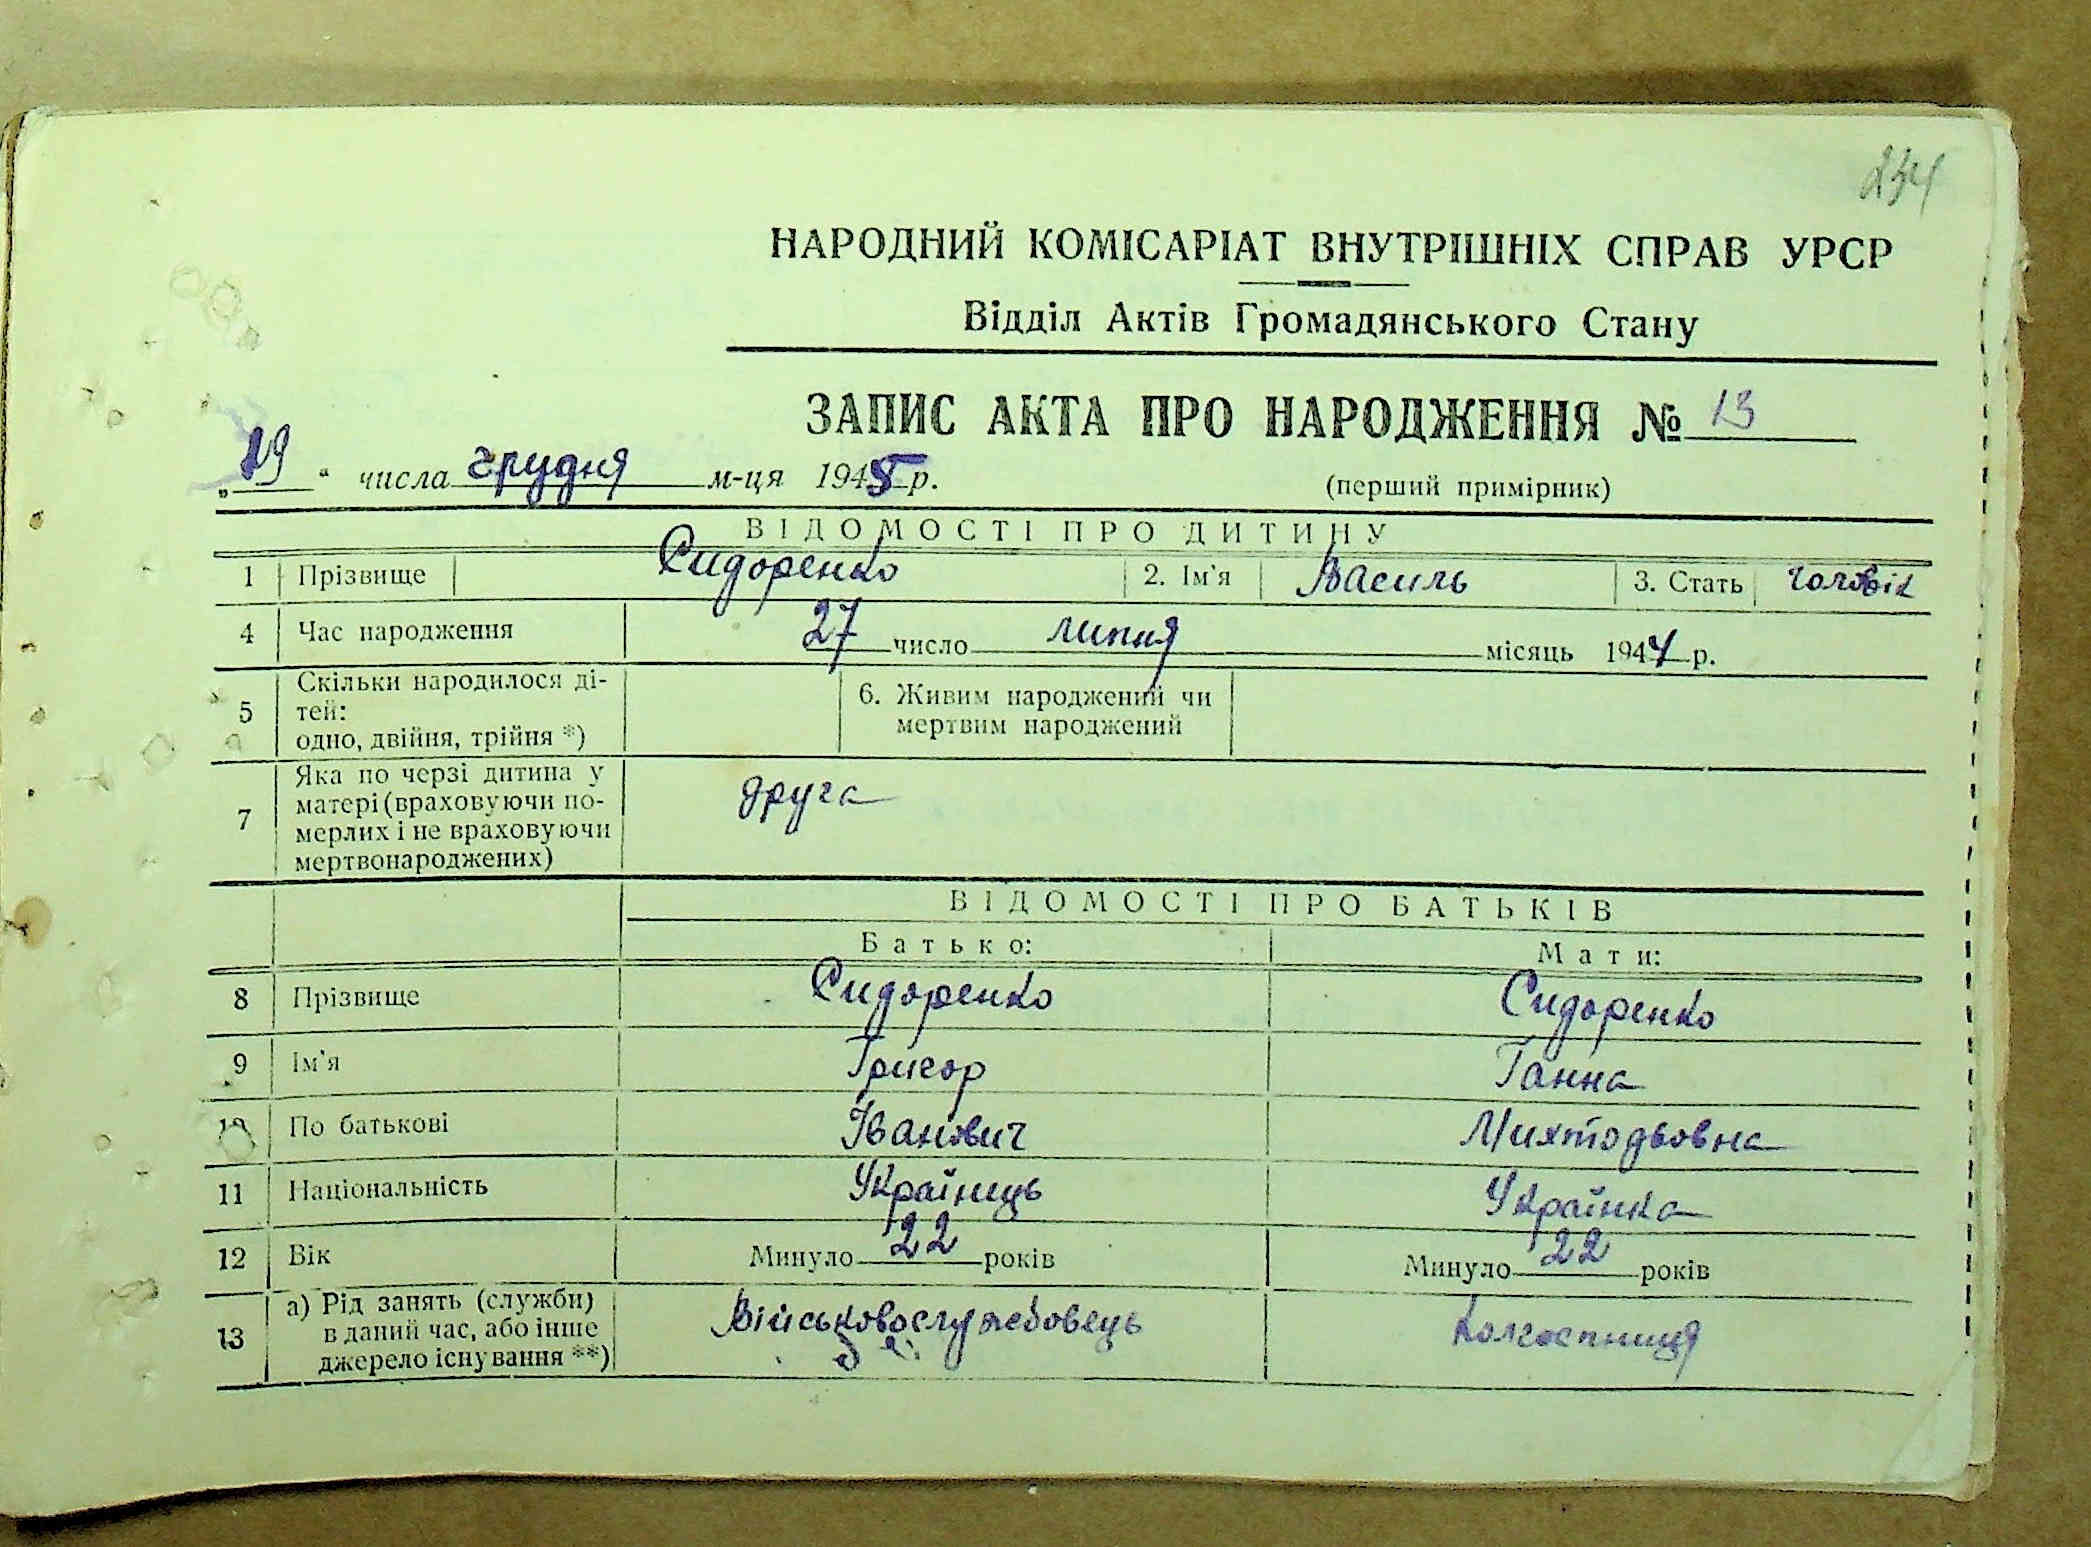 234
НАРОДНИЙ КОМІСАРІАТ ВНУТРІШНІХ СПРАВ УРСР
Відділ Актів Громадянського Стану
ЗАПИС АКТА ПРО НАРОДЖЕННЯ № 13
„19“ числа грудня м-ця 1945 р.
(перший примірник)
ВІДОМОСТІ ПРО ДИТИНУ
1 Прізвище Сидоренко 2. Ім'я Василь 3. Стать чоловік
4 Час народження 27 число липня місяць 1944 р.
5 Скільки народилося ді-
тей:
одно, двійня, трійня *)
6. Живим народжений чи
мертвим народжений
7 Яка по черзі дитина у
матері (враховуючи по-
мерлих і не враховуючи
мертвонароджених)
друга
ВІДОМОСТІ ПРО БАТЬКІВ
Батько: Мати:
8 Прізвище Сидоренко Сидоренко
9 Ім'я Григор Ганна
10 По батькові Іванович
11 Національність Українець Українка
12 Вік Минуло 22 років Минуло 22 років
13 а) Рід занять (служби)
в даний час, або інше
джерело існування **)
Військовослужбовець Колгоспниця